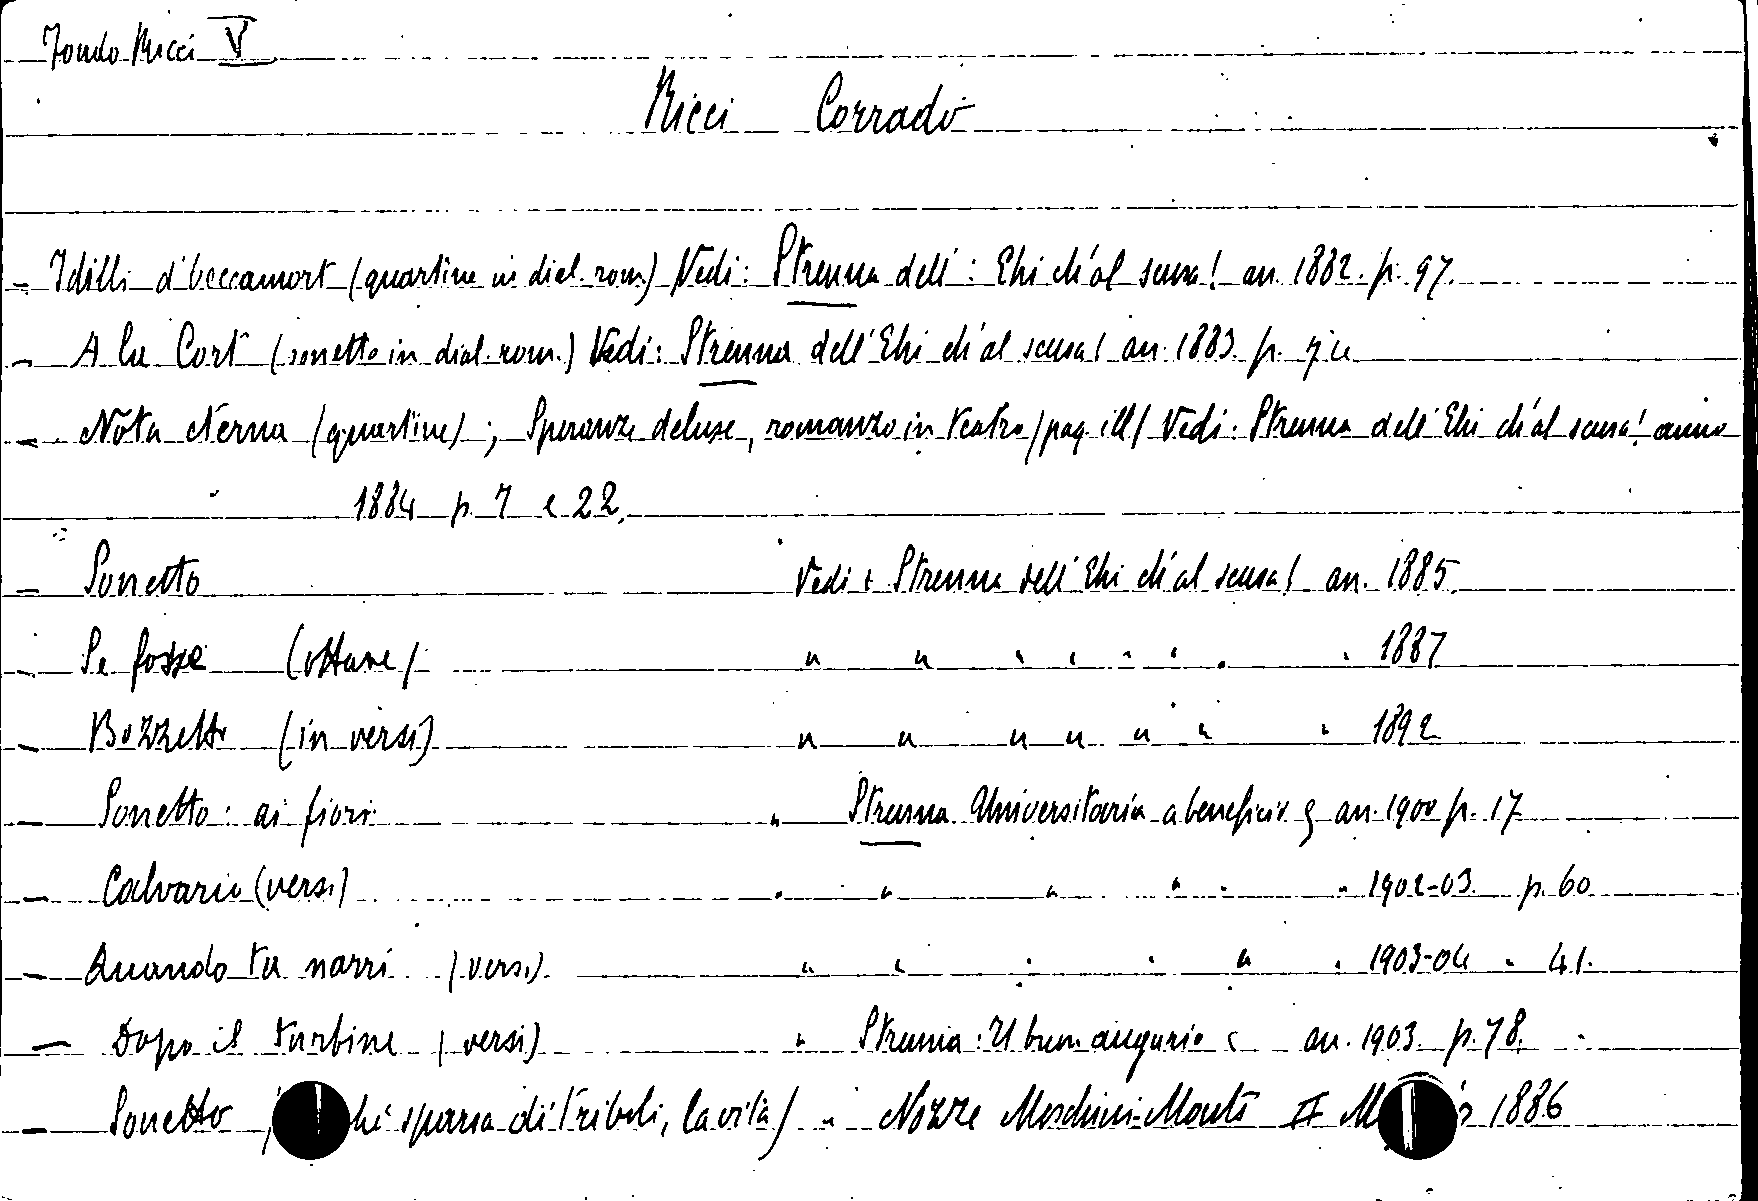 Fondo Ricci V
Ricci Corrado
- Idilli d'beccamort (quartine in dial. rom.) Vedi: Strenna dell': Ehi ch'al scusa! an. 1882. p. 97.
- A la Cort (sonetto in dial. rom.) Vedi: Strenna dell'Ehi ch'al scusa! an. 1883. p. 74
- Nota eterna (quartine); Speranze deluse, romanzo in teatro (pag. ill) Vedi: Strenna dell'Ehi ch'al scusa! anno
1884 p. 7 e 22.
- Sonetto Vedi: Strenna dell'Ehi ch'al scusa! an. 1885.
- Se fosse (ottave) " " " " " " " " 1887
- Bozzetto (in versi) " " " " " " " 1892
- Sonetto: ai fiori " Strenna Universitaria a beneficio an. 1900 p. 17
- Calvario (versi) " " " " " " 1902-03. p. 60
- Quando tu narri (versi) " " " " " " 1903-04 " 41.
- Dopo il turbine (versi) " Strenna: Il buon augurio an. 1903. p. 78.
- Sonetto hé sparsa di triboli, la vita) " Nozze Moschini-Monti II 1886